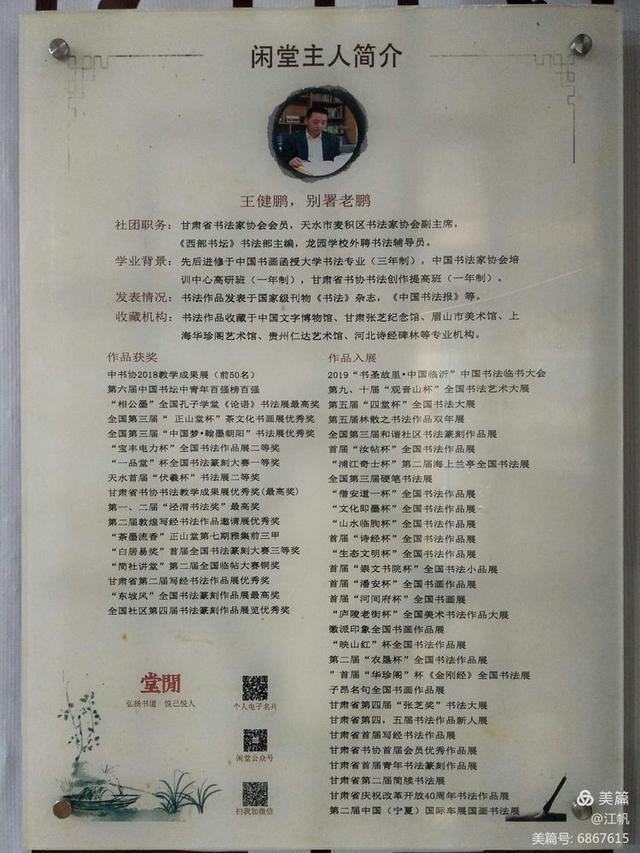 闲堂主人简介
王健鹏，别署老鹏
社团职务：甘肃省书法家协会会员，天水市麦积区书法家协会副主席，
《西部书坛》书法部主编，龙园学校外聘书法辅导员。
学业背景：先后进修于中国书画函授大学书法专业（三年制），中国书法家协会培
训中心高研班（一年制），甘肃省书协书法创作提高班（一年制）。
发表情况：书法作品发表于国家级刊物《书法》杂志，《中国书法报》等。
收藏机构：书法作品收藏于中国文字博物馆、甘肃张芝纪念馆、眉山市美术馆、上
海华珍阁艺术馆、贵州仁达艺术馆、河北诗经碑林等专业机构。
作品获奖
中书协2018教学成果展（前50名）
第六届中国书坛中青年百强榜百强
“相公墨”全国孔子学堂《论语》书法展最高奖
全国第三届“正山堂杯”茶文化书画展优秀奖
全国第三届“中国梦•翰墨朝阳”书法展优秀奖
“宝丰电力杯”全国书法作品展二等奖
“一品堂”杯全国书法篆刻大赛一等奖
天水首届“伏羲杯”书法展二等奖
甘肃省书协书法教学成果展优秀奖(最高奖)
第一、二届“泾渭书法奖”最高奖
第二届敦煌写经书法作品邀请展优秀奖
“茶墨流香”正山堂第七期雅集前三甲
“白居易奖”首届全国书法篆刻大赛三等奖
“简牍讲堂”第二届全国临帖大赛铜奖
甘肃省第二届写经书法作品展优秀奖
“东坡风”全国书法篆刻作品展最高奖
全国社区第四届书法篆刻作品展览优秀奖
作品入展
2019“书圣故里•中国临沂”中国书法临书大会
第九、十届“观音山杯”全国书法艺术大展
第五届“四堂杯”全国书法大展
第五届林散之书法作品双年展
全国第三届和谐社区书法篆刻作品展
首届“汝帖杯”全国书法作品展
“浦江奇士杯”第二届海上兰亭全国书法展
全国第三届硬笔书法展
“僧安道一杯”全国书法作品展
“文化即墨杯”全国书法作品展
“山水临朐杯”全国书法作品展
首届“诗经杯”全国书法作品展
“生态文明杯”全国书法作品展
首届“崇文书院杯”全国书法小品展
首届“潘安杯”全国书画作品展
首届“河间府杯”全国书画展
“庐陵老街杯”全国美术书法作品大展
徽派印象全国书画作品展
“映山红”杯全国书法作品展
第二届“农垦杯”全国书法作品展
”首届“华珍阁”杯《金刚经》全国书法展
子昂名句全国书画作品展
甘肃省第四届“张芝奖”书法大展
甘肃省第四，五届书法作品新人展
甘肃省首届写经书法作品展
甘肃省书协首届会员优秀作品展
甘肃省首届青年书法篆刻作品展
甘肃省第二届简牍书法展
甘肃省庆祝改革开放40周年书法作品展
第二届中国（宁夏）国际车展国画书法展
堂閒
弘扬书道 悦己悦人
个人电子名片
闲堂公众号
扫我加微信
美篇
@江帆
美篇号: 6867615